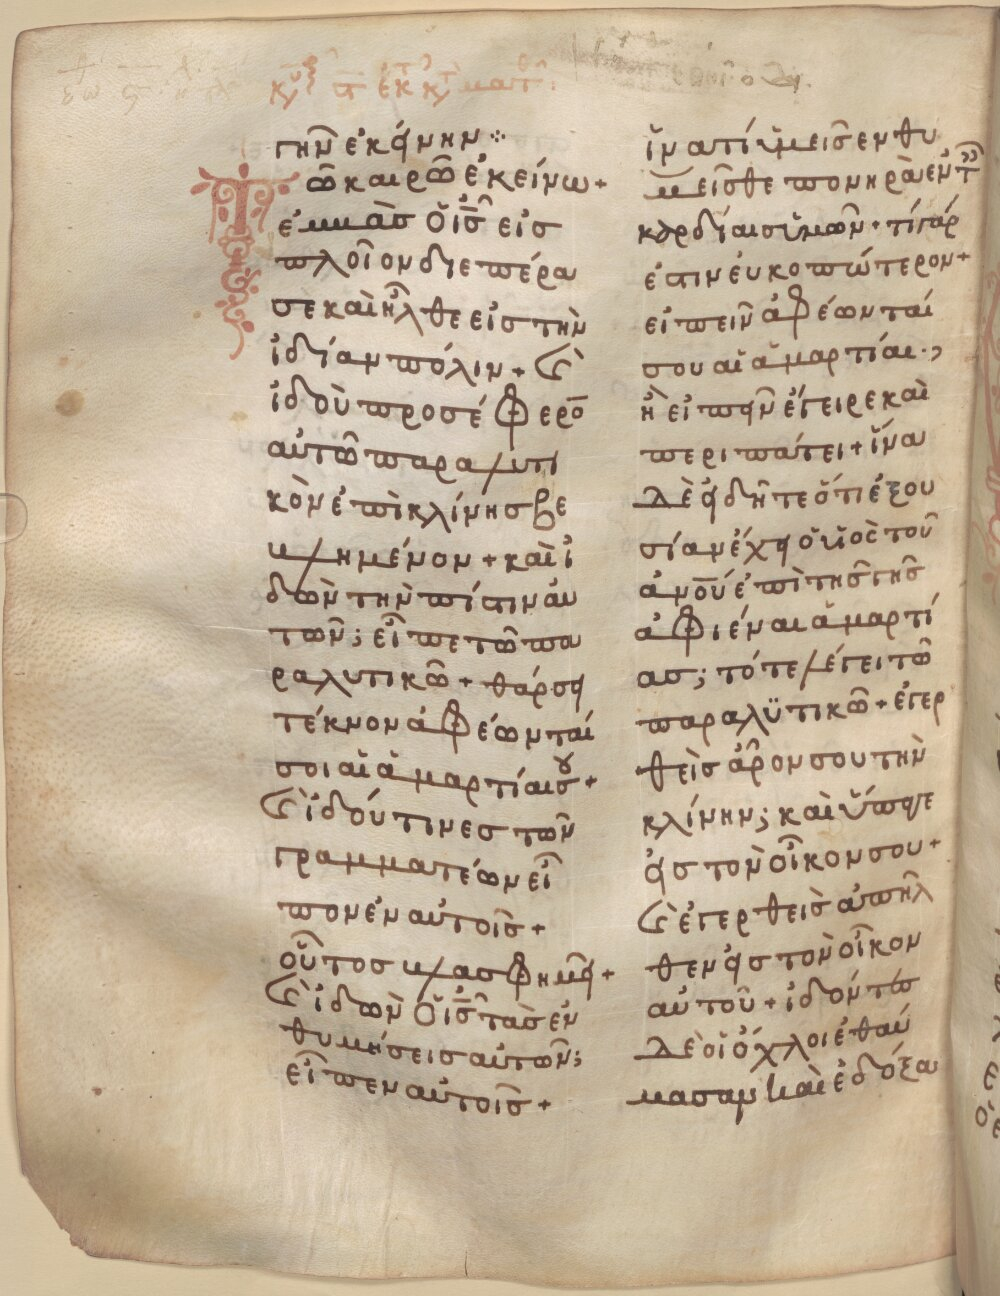 γὴν ἐκείνην
Τῶ καιρῶ ἐκείνω+
ἐμβὰσ ὁ ἰ̅σ̅ εἰσ
πλοῖον διεπέρα
σε καὶ ἦλθε εἰσ τὴν
ἰδίαν πόλιν + καὶ
ἰδοὺ προσέφερο̅
αὐτῶ παραλυτι
κὸν ἐπὶ κλίνησ βε
βλημένον + καὶ ἰ
δὼν τὴν πίστιν αὐ
τῶν; εἶπε τῶ πα
ραλυτικῶ + θάρσει
τέκνον ἀφέωνταί
σοι αἱ ἁμαρτίαι σου+
Καὶ ἰδού τινεσ τῶν
γραμματέων εἶ
πον ἐν αὐτοῖσ +
οὗτοσ βλασφημεῖ +
Καὶ ἰδὼν ὁ ἰ̅σ̅ τὰσ ἐν
θυμήσεισ αὐτῶν;
εἶπεν αὐτοῖσ +
ἵνα τί ὑμεῖσ ενθυ
μεῖσθε πονηρὰ ἐν ταῖσ
καρδίαισ ὑμῶν + τί γάρ
ἐστιν εὐκοπώτερον+
εἰπεῖν ἀφέωνταί
σου αἱ ἁμαρτίαι·,
ἢ εἰπεῖν ἔγειρε καὶ
περιπάτει + ἵνα
δὲ εἰδῆτε ὅτι ἐξου
σίαν ἔχει ὁ υἱὸσ τοῦ
ἀν̅ο̅υ ἐπὶ τῆσ γῆσ
ἀφιέναι ἁμαρτί
ασ; τότε λέγει τῶ
παραλϋτικῶ + ἐγερ
θεὶσ ἆρον σου τὴν
κλίνην; καὶ ὕπαγε
εἰσ τὸν οἶκον σου+
Καὶ ἐγερθεὶσ ἀπῆλ
θεν εἰσ τὸν οἶκον
αὐτοῦ + ἰδόντεσ
δὲ οἱ ὄχλοι ἐθαύ
μασαν καὶ ἐδόξα